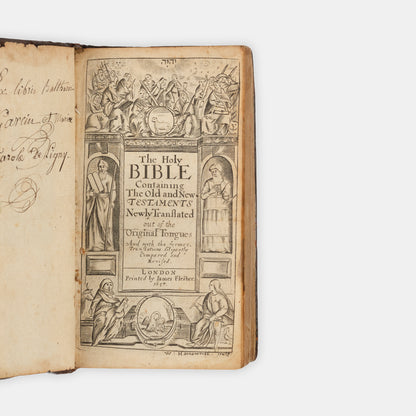 ex libris
Garcin et
Carole De Ligny
יהוה
The Holy
BIBLE
Containing
The Old and New
TESTAMENTS
Newly Translated
out of the
Original Tongues
And with the former
Translations diligently
Compared and
Revised.
LONDON
Printed by James Flesher
1657